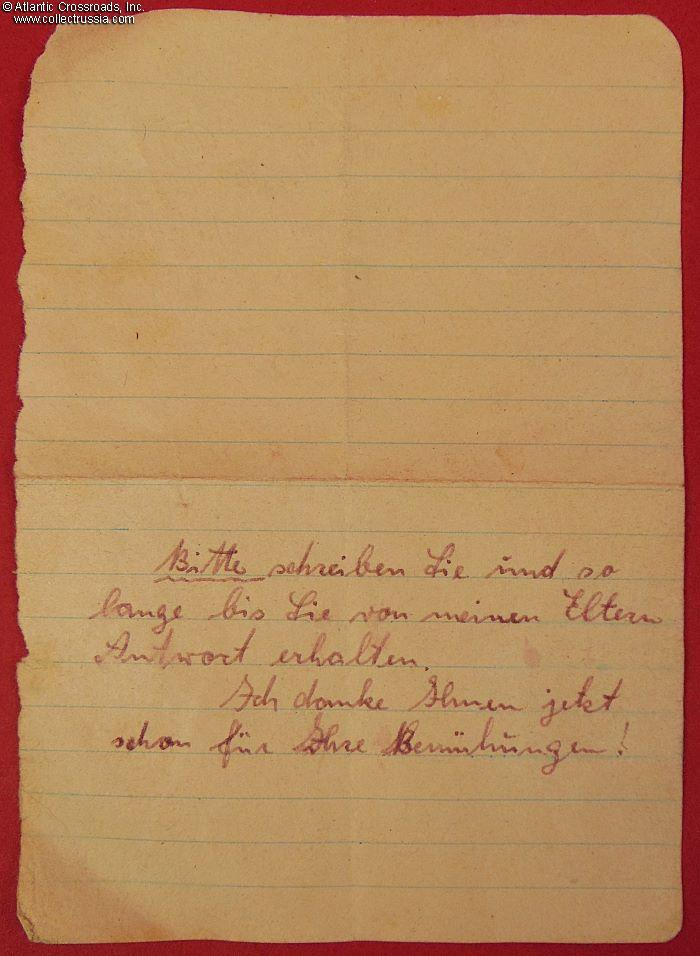 © Atlantic Crossroads, Inc.
www.collectrussia.com
Bitte schreiben Sie und so
lange bis Sie von meinen Eltern
Antwort erhalten.
Ich danke Ihnen jetzt
schon für Ihre Bemühungen!